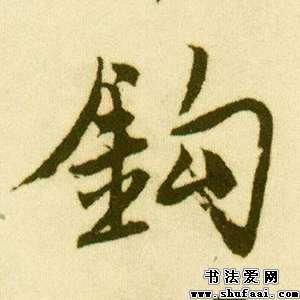 鈎
书法爱网
www.shufaai.com